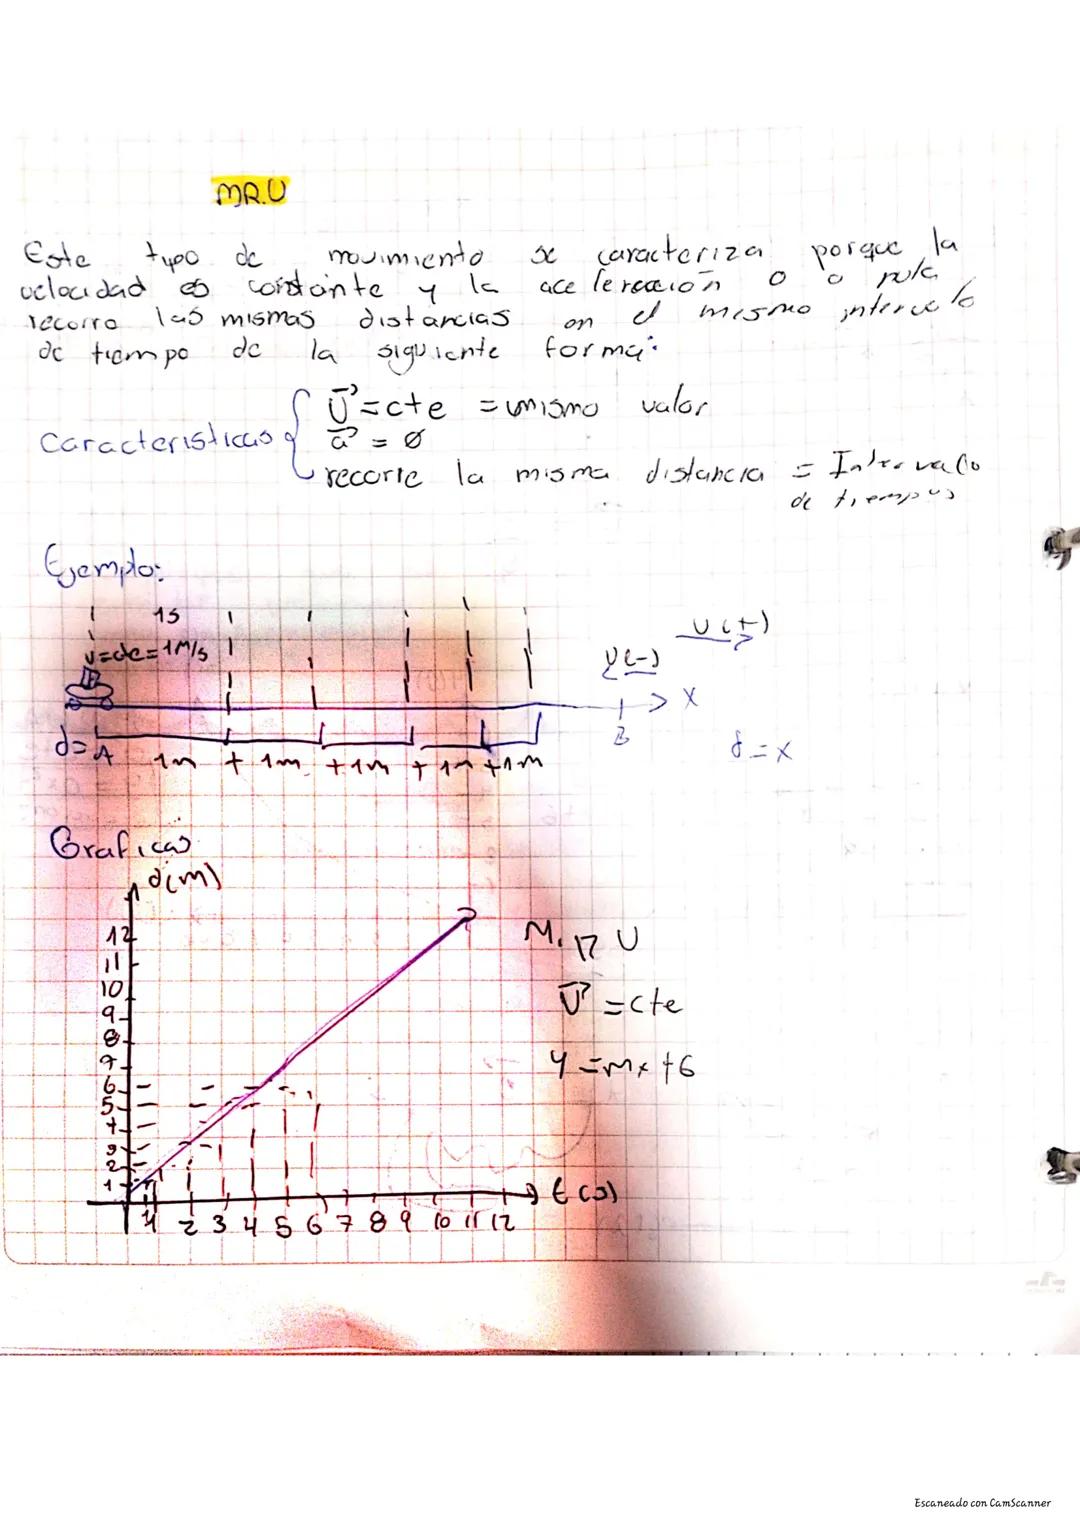 M.R.U
Este typo de movimiento se caracteriza porque la
velocidad es constante y la acelereación o o nula
recorre las mismas distancias en el mismo intervalo
de tiempo de la siguiente forma:
Caracteristicas
V = cte = mismo valor
a = ∅
recorre la misma distancia = Intervalo
de tiempos
Ejemplo:
1s
V=cte=1M/s
V(+)
V(-)
X
d= A 1m + 1m + 1m + 1m + 1m
B
d = x
Graficas
d(m)
12
11
10
9
8
7
6
5
4
3
2
1
M. R U
V = cte
y = mx + b
t (s)
1 2 3 4 5 6 7 8 9 10 11 12
Escaneado con CamScanner